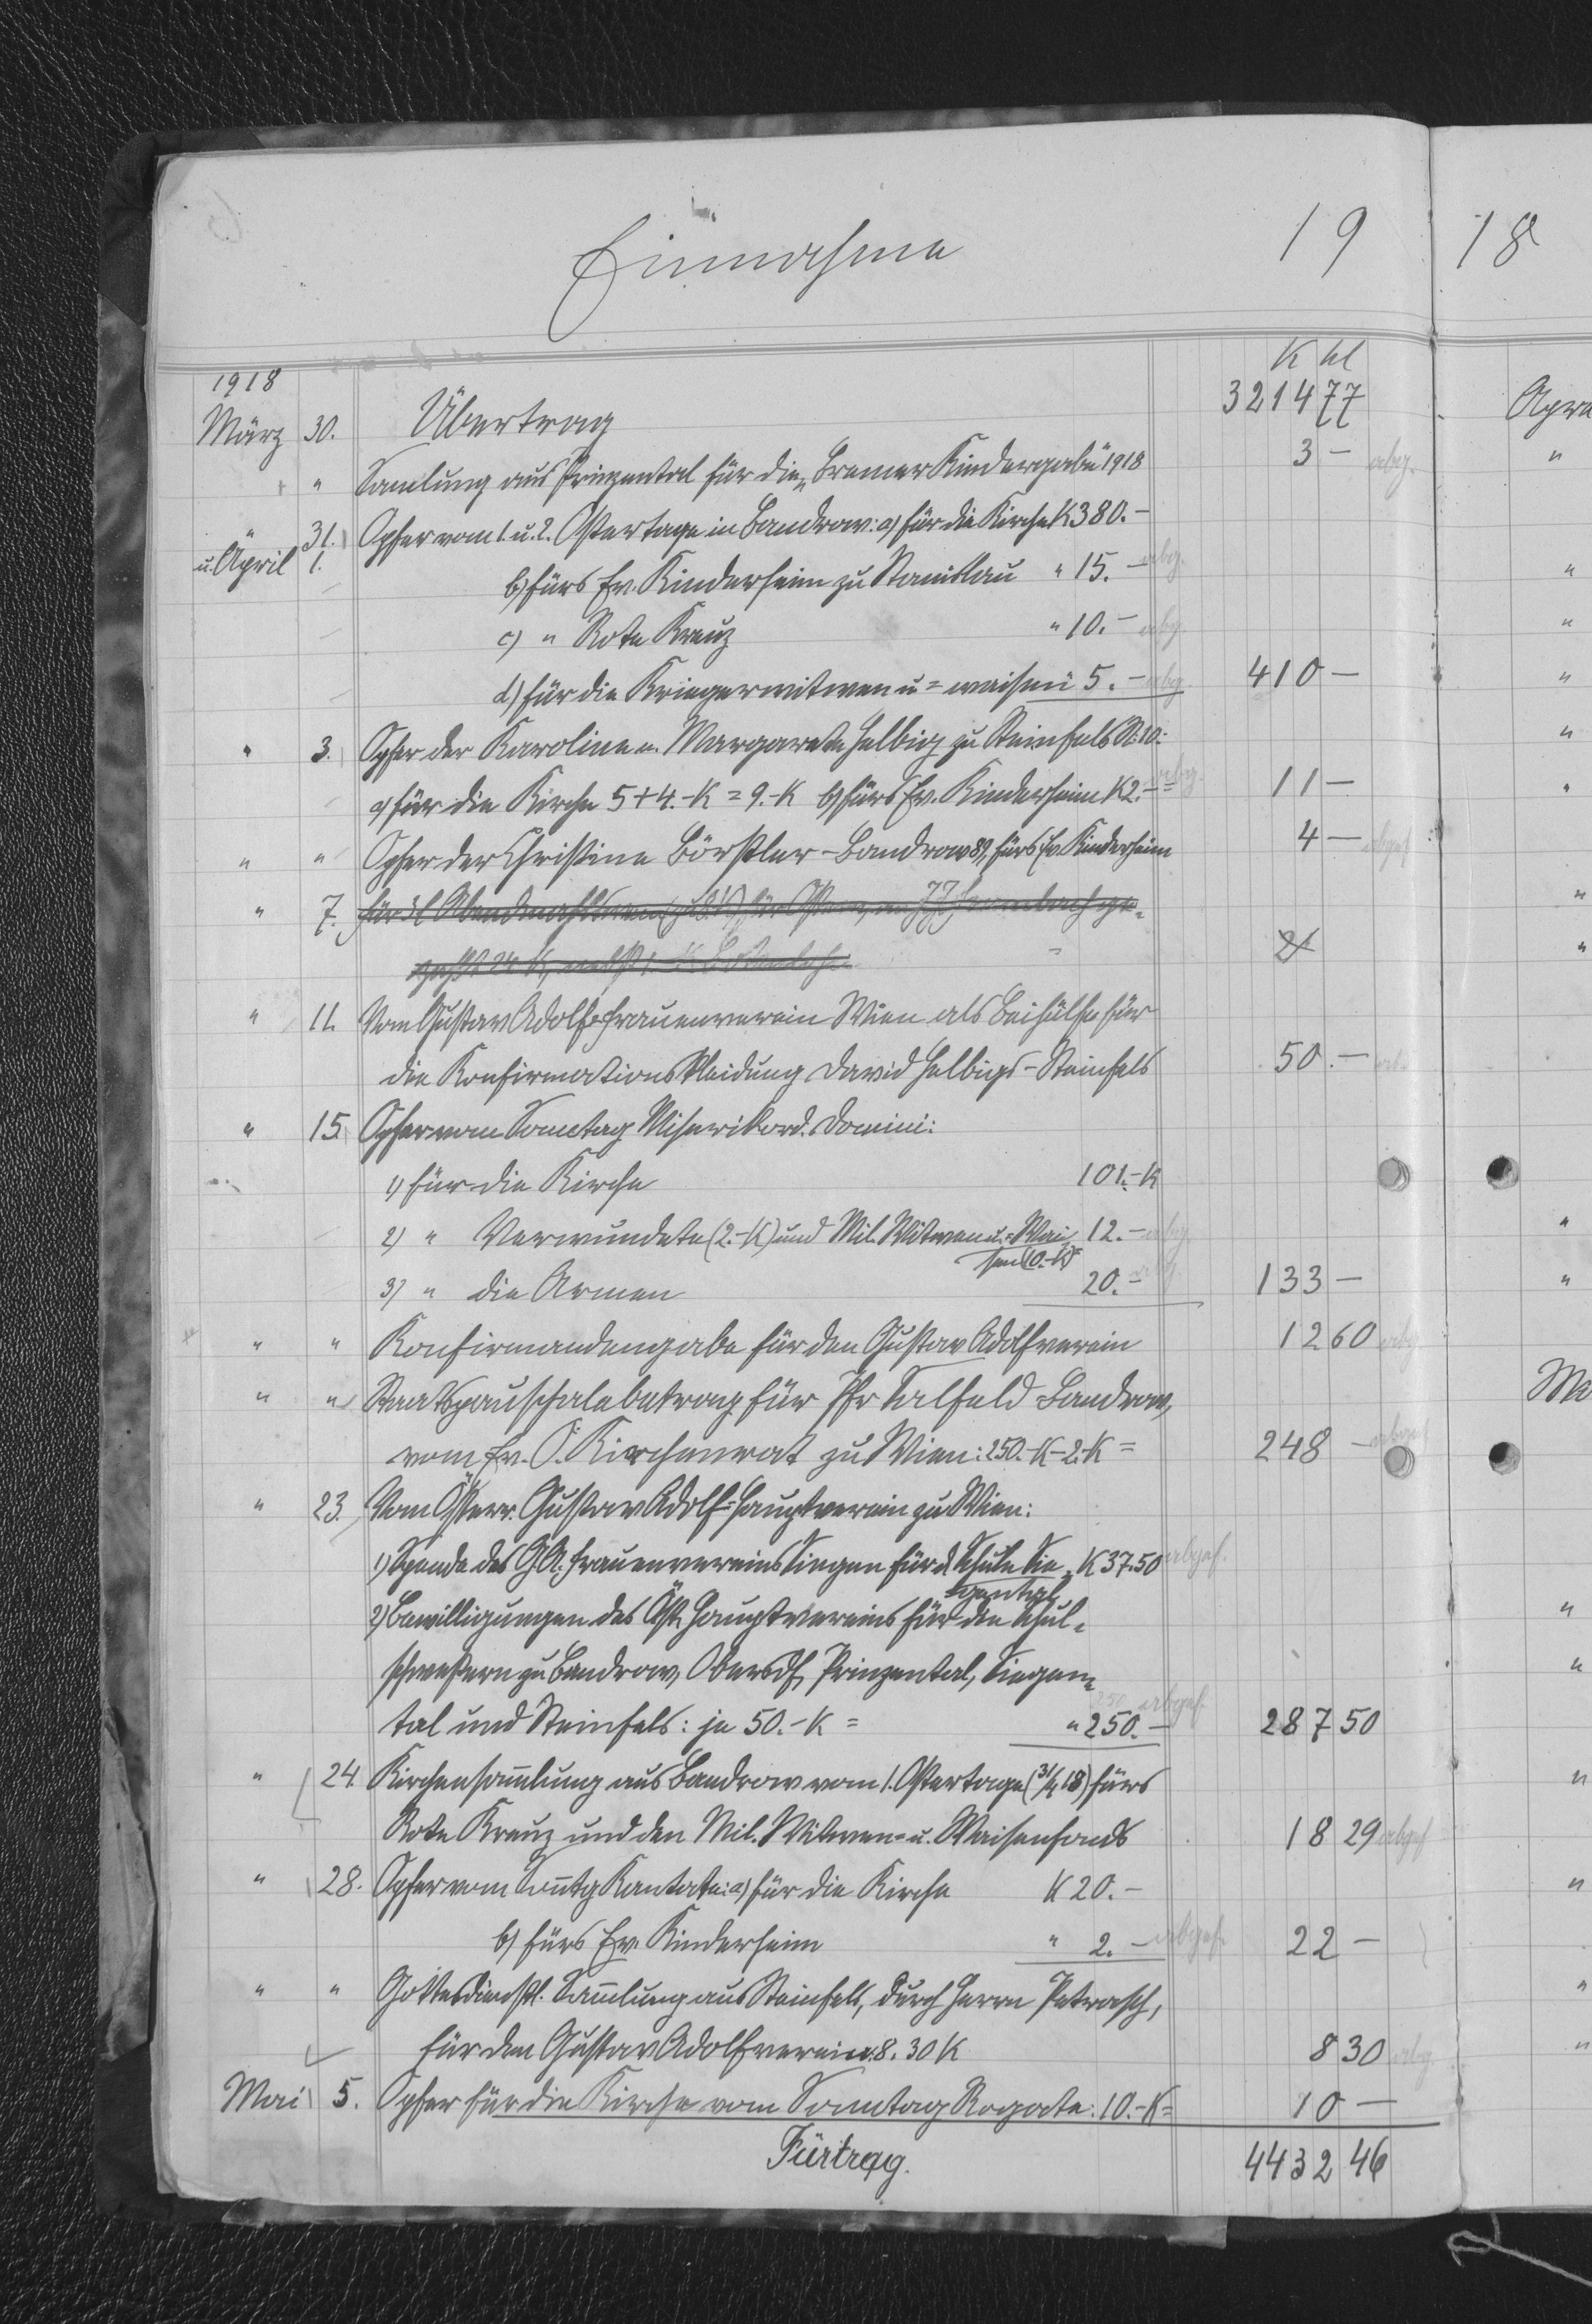 Einnahme 19 18
K hl
1918
März 30. Übertrag 3214 77
" " Samlung aus Prinzental für die „Bremer Kindergabe" 1918 3 – abg.
" 31. Opfer vom 1. u. 2. Ostertage in Bandrow: a) für die Kirche K 380.–
u. April 1.
b) fürs Ev. Kinderheim zu Stanislau " 15.– abg.
c) " Rote Kreuz " 10.– abg.
d) für die Kriegerwitwen u = waisen " 5.– abg. 410 –
" 3. Opfer der Karoline u. Margarete Helbig zu Steinfels N. 10:
a) für die Kirche 5 + 4.– K = 9.– K b) fürs Ev. Kinderheim K 2.– = abg. 11 –
" " Opfer der Christine Börstler – Bandrow 89, fürs Ev. Kinderheim 4 – abgef
" 7. für 3 l Abendmahlswein für Ostern, an
zahlt 24 K,
" 11. Vom Gustav Adolf-Frauenverein Wien als Beihülfe für
die Konfirmationskleidung David Helbigs – Steinfels 50.–
" 15. Opfer vom Sonntag Miserikord. Domini:
1) für die Kirche 101.– K
2) " Verwundete (2.– K) und Mil. Witwen u.= Wai= 12.– abg
sen (10.– K)
3) " die Armen 20.– abg. 133 –
" " Konfirmandengabe für den Gustav Adolfverein 12 60 abg
" " Staatspauschalebetrag für Pfr Salfeld Bandrow,
vom Ev. O. Kirchenrat zu Wien: 250.– K – 2.– K = 248 – abgef
" 23. Vom Österr. Gustav Adolf-Hauptverein zu Wien:
1) Spende des G. A. Frauenvereins Siegen für d. Schule Sie= K 37.50 abgef.
gental
2) Bewilligungen des Öst. Hauptvereins für die Schul=
schwestern zu Bandrow, Obersdf, Prinzental, Siegen=
250 abgef
tal und Steinfels: je 50.– K = " 250.– 287 50
" 24. Kirchensammlung aus Bandrow vom 1. Ostertage (31/3 18) fürs
Rote Kreuz und den Mil. Witwen= u. Waisenfonds 18 29 abgef
" 28. Opfer vom Sonntg Kantate: a) für die Kirche K 20.–
b) fürs Ev. Kinderheim " 2.– abgef. 22 –
" " Gottesdienstl. Sammlung aus Steinfels, durch Herrn Petrasch,
für den Gustav Adolfverein: 8.30 K 8 30 abg.
Mai 5. Opfer für die Kirche vom Sonntag Rogate: 10.– K = 10 –
Fürtrag. 4432 46